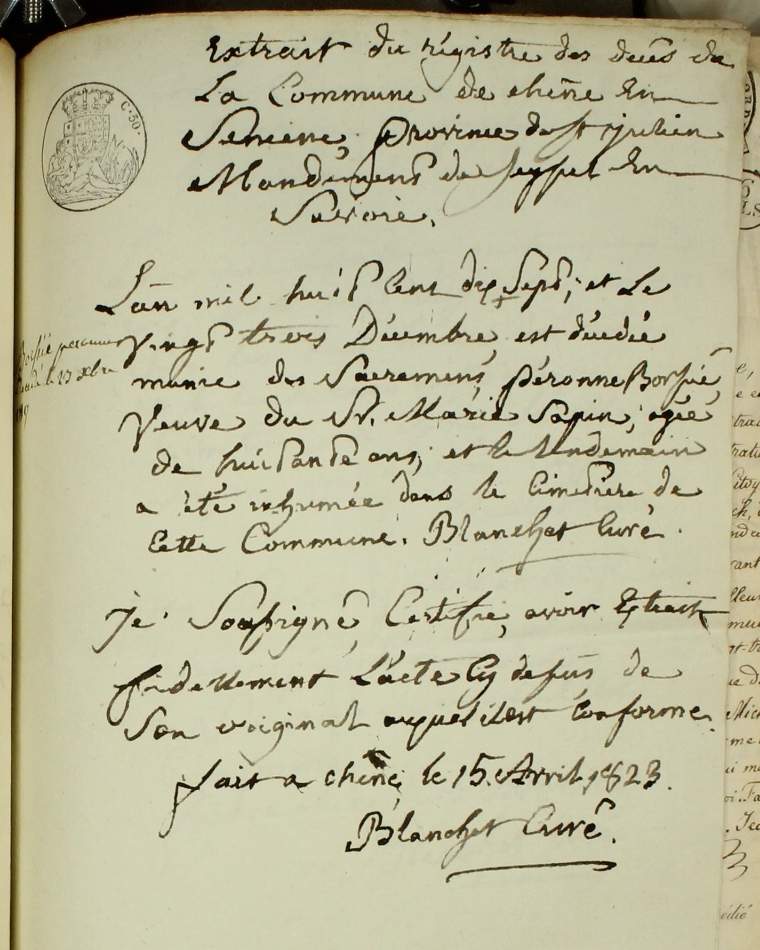 Extrait du régistre des decés de
La Commune de chêne En
Semine, province de St julien
Mandement de seyssel En
Savoie.
C. 50.
L'an mil huit Cent dix Sept, et Le
Vingt trois Décembre est décédée
munie des Sacremens, péronne Borsié,
Veuve du Sr. Marie Sapin, agée
de huitante ans, et le lendemain
a été inhumée dans le Cimetière de
Cette Commune. Blanchet Curé.
le 23 xbre
je Soussigné, Certifie, avoir Extrait
fidellement L'acte Cy dessus de
Son original auquel il est Conforme.
fait a chêne le 15. Avril 1823.
Blanchet Curé.